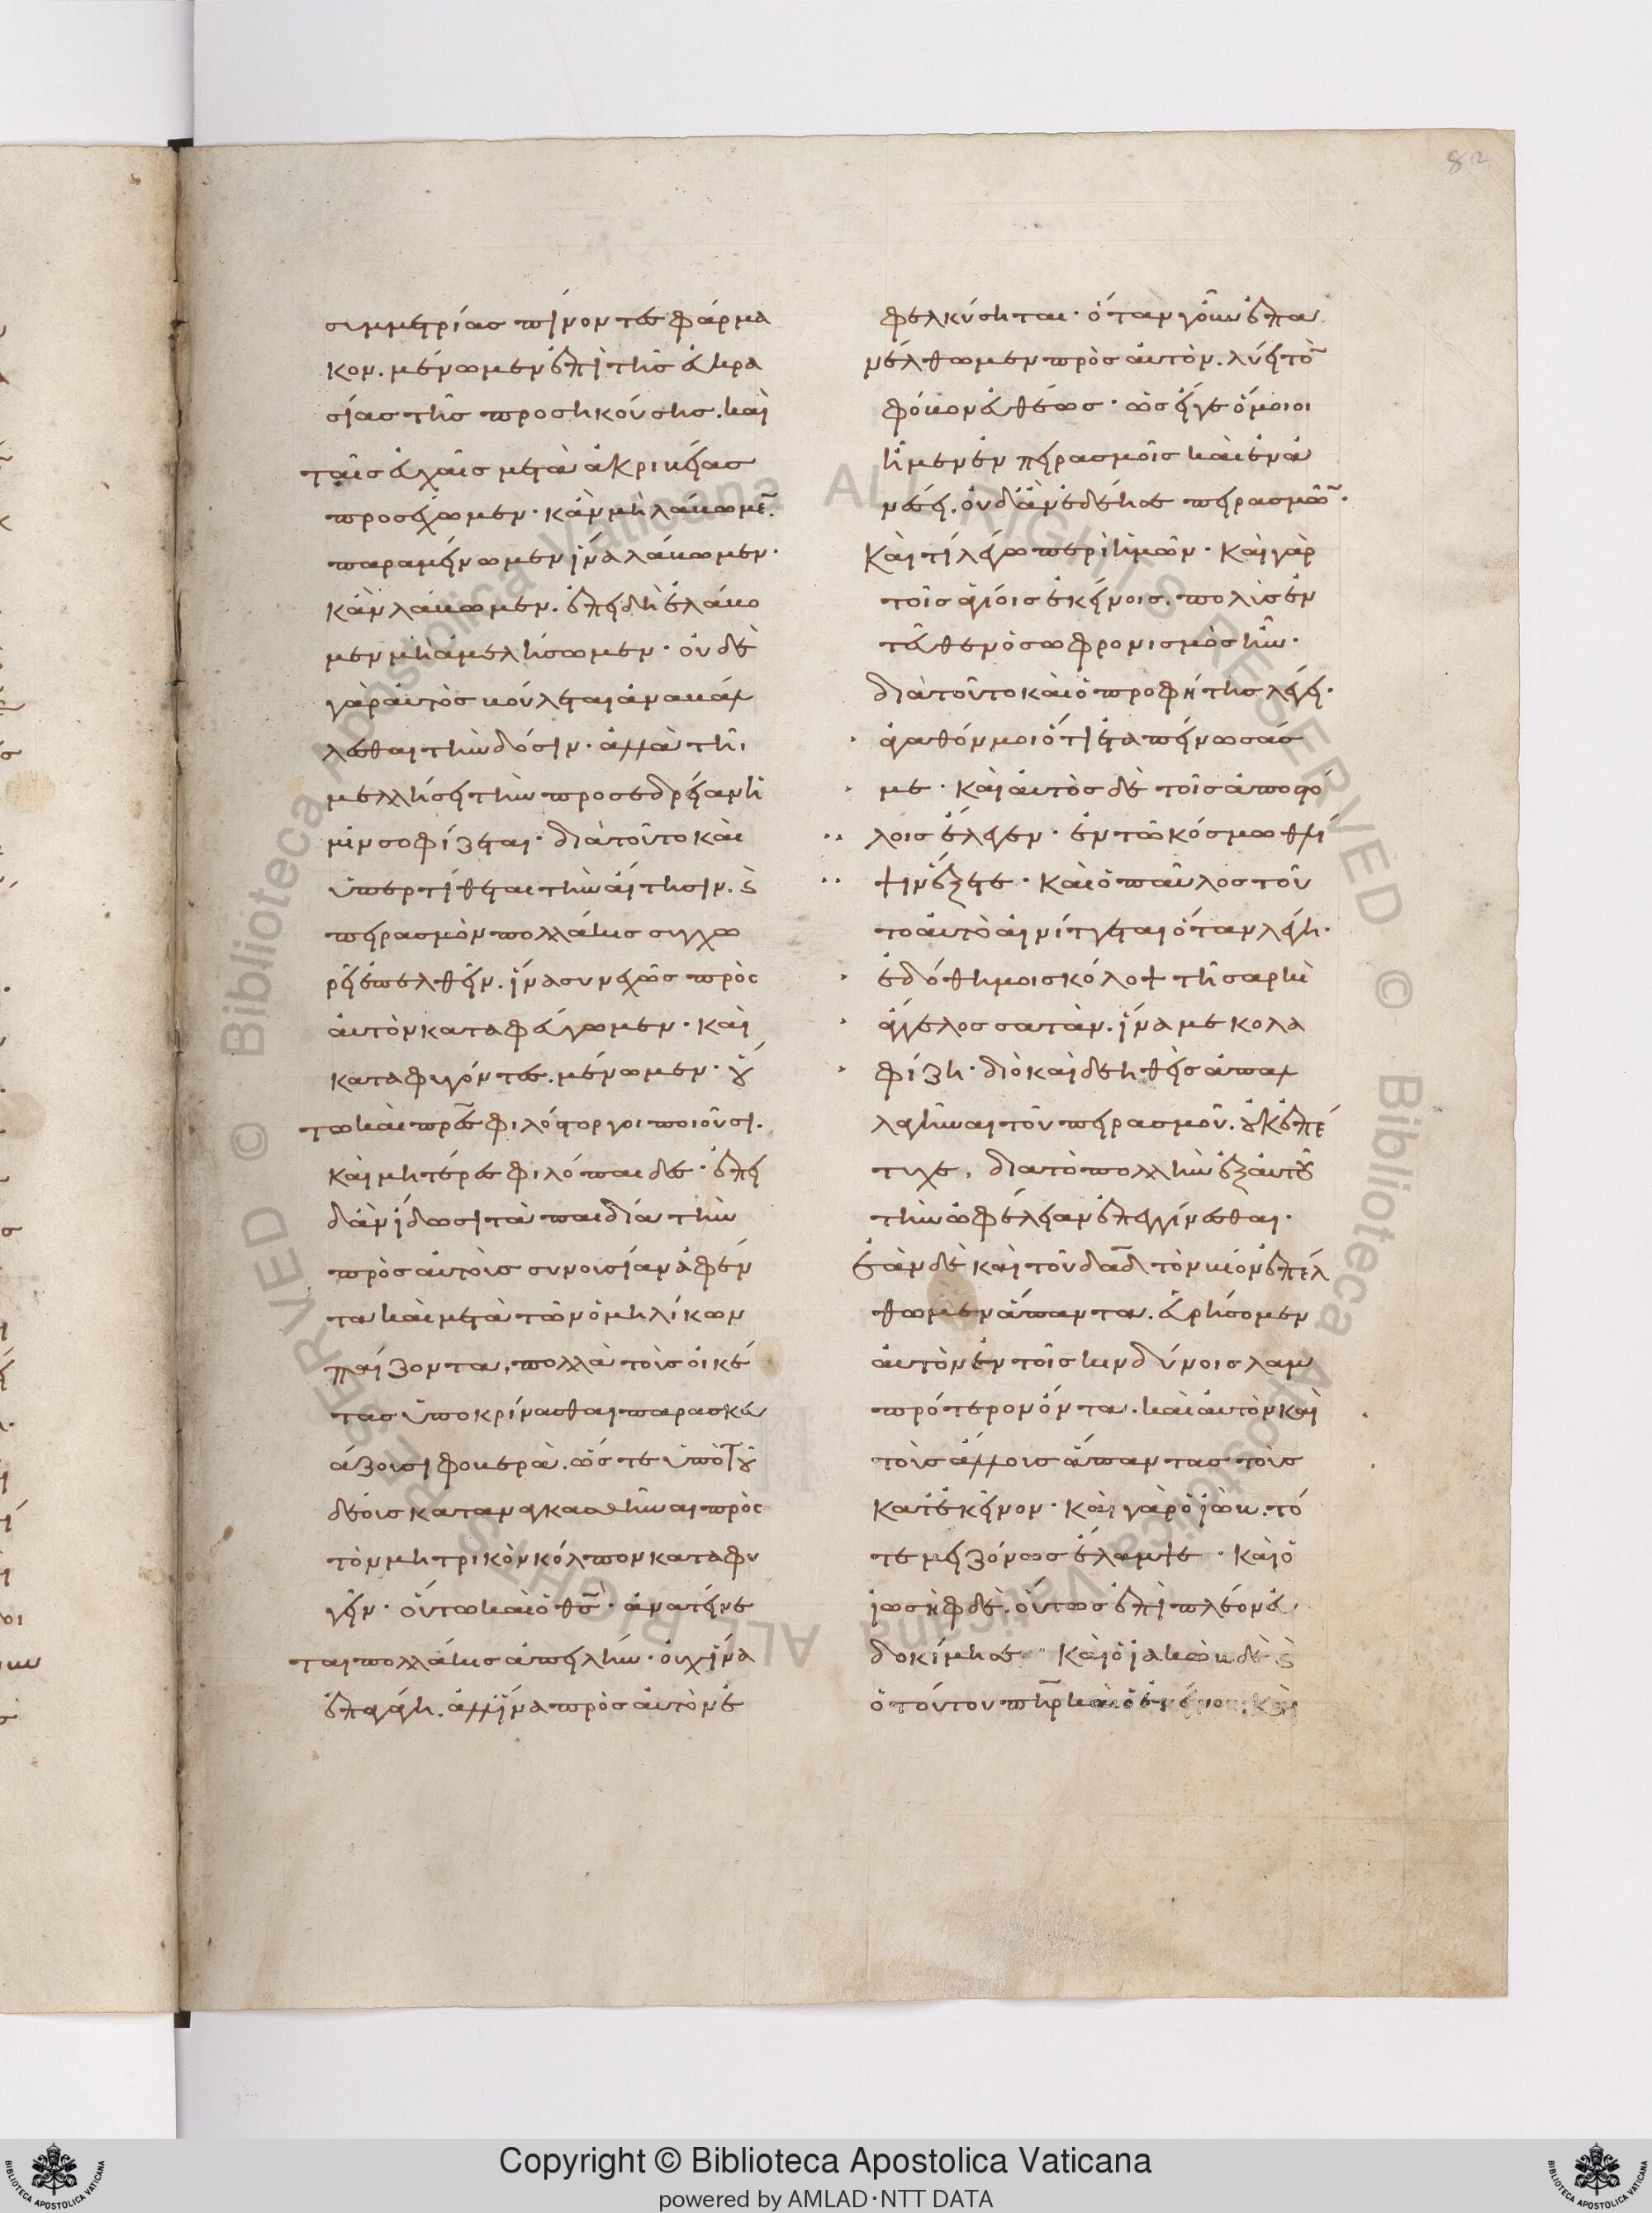 82
συμμετρίας πίνοντες φάρμα
κον. μένωμεν ἐπὶ τῆς εὐκρα
σίας τῆς προσηκούσης. καὶ
ταῖς εὐχαῖς μετὰ ἀκριβείας
προσέχωμεν· κἂν μὴ λάβωμε̅.
παραμένωμεν ἵνα λάβωμεν·
κἂν λάβωμεν. ἐπειδὴ ἐλάβο
μεν μὴ ἀμελήσωμεν· οὐδὲ
γὰρ αὐτὸς βούλεται ἀναβάλ
λεσθαι τὴν δόσιν· ἀλλὰ τῆι
μελλήσει τὴν προσεδρείαν ἡ
μῖν σοφίζεται· διὰ τοῦτο καὶ
ὑπερτίθεται τὴν αἴτησιν. ϗ
πειρασμὸν πολλάκις συγχω
ρεῖ ἐπελθεῖν. ἵνα συνεχῶς πρὸς
αὐτὸν καταφεύγωμεν· καὶ
καταφυγόντες. μένωμεν· οὕ
τω καὶ πρ̅ες φιλόστοργοι ποιοῦσι.
καὶ μητέρες φιλόπαιδες· ἐπει
δὰν ἴδωσι τὰ παιδία τὴν
πρὸς αὐτοὺς συνουσίαν ἀφέν
τα καὶ μετὰ τῶν ὁμηλίκων
παίζοντα, πολλὰ τοὺς οἰκέ
τας ὑποκρίνασθαι παρασκευ
άζουσι φοβερὰ. ὥστε ὑπὸ τοῦ
δέους καταναγκασθῆναι πρὸς
τὸν μητρικὸν κόλπον καταφυ
γεῖν· οὕτω καὶ ὁ θ̅ς· ἀνατείνε
ται πολλάκις ἀπειλήν· οὐχ ἵνα
ἐπαγάγη. ἀλλ' ἵνα πρὸς αὐτὸν ἐ
φελκύσηται· ὅταν γοῦν ἐπα
νέλθωμεν πρὸς αὐτὸν. λύει τὸ̅
φόβον εὐθέως· ὡς εἴγε ὅμοιοι
ἦμεν ἐν πειρασμοῖς καὶ ἐν ἀ
νέσει. οὐδ' ἂν ἐδέησε πειρασμῶ̅.
Καὶ τί λέγω περὶ ἡμῶν· καὶ γὰρ
τοῖς ἁγίοις ἐκείνοις. πολὺς ἐν
τεῦθεν ὁ σωφρονισμὸς ἦν·
διὰ τοῦτο καὶ ὁ προφήτης λέγει·
ἀγαθόν μοι ὅτι ἐταπείνωσάς
με· καὶ αὐτὸς δὲ τοῖς ἀποστό
λοις ἔλεγεν· ἐν τῶ κόσμω θλί
ψιν ἕξετε· καὶ ὁ παῦλος τοῦ
το αὐτὸ αἰνίττεται ὅταν λέγη·
ἐδόθη μοι σκόλοψ τῆ σαρκὶ
ἄγγελος σατὰν. ἵνα με κολα
φίζη· διὸ καὶ δεηθεὶς ἀπαλ
λαγῆναι τοῦ πειρασμοῦ. οὐκ ἐπέ
τυχε, διὰ τὸ πολλὴν ἐξ αὐτοῦ
τὴν ὠφέλειαν ἐπεγγίνεσθαι·
Ἐὰν δὲ καὶ τοῦ δα̅δ τὸν βίον ἐπέλ
θωμεν ἅπαντα. εὑρήσομεν
αὐτὸν ἐν τοῖς κινδύνοις λαμ
πρότερον ὄντα. καὶ αὐτὸν καὶ
τοὺς ἄλλους ἅπαντας τοὺς
κατ' ἐκεῖνον· καὶ γὰρ ὁ ἰὼβ. τό
τε μειζόνως ἔλαμψε· καὶ ὁ
ἰωσὴφ δὲ. οὕτως ἐπὶ πλέον εὐ
δοκίμησε· καὶ ὁ ἰακὼβ δὲ ϗ
ὁ τούτου πη̅ρ καὶ ὁ ἐκείνου· καὶ
Copyright © Biblioteca Apostolica Vaticana
powered by AMLAD·NTT DATA